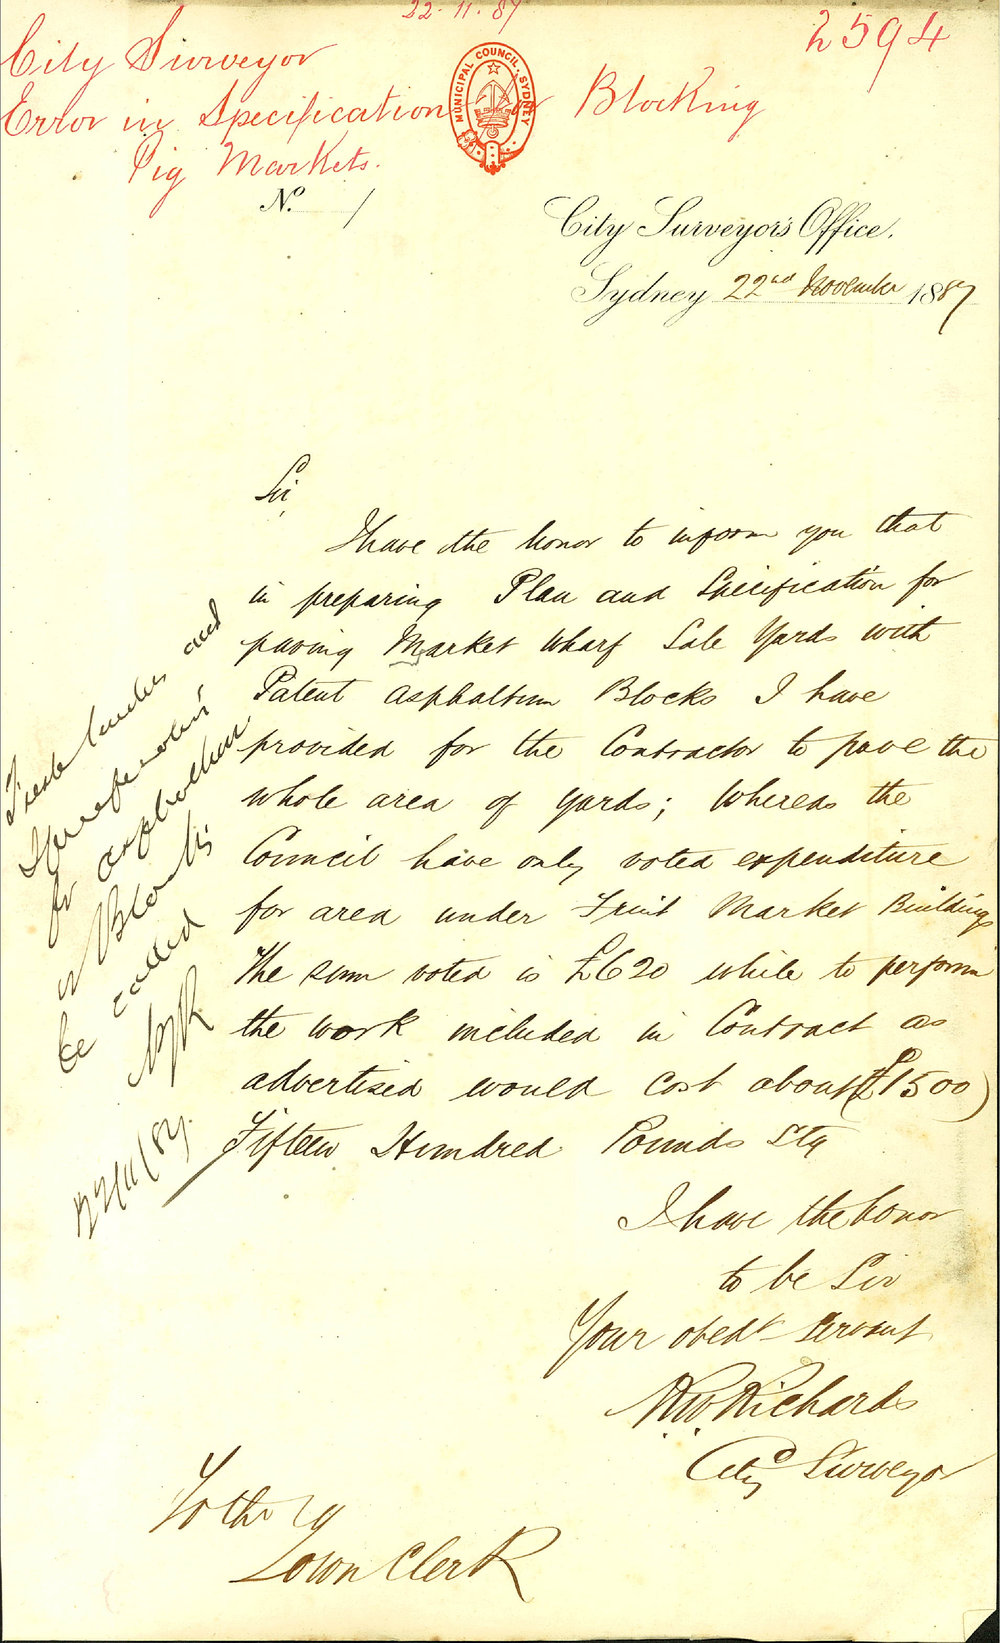 22. 11. 87
2594
City Surveyor
Error in Specification for Blocking
Pig Markets.
MUNICIPAL COUNCIL. SYDNEY
No. 1
City Surveyor's Office.
Sydney 22nd November 1887
Sir,
I have the honor to inform you that
in preparing Plan and Specification for
paving Market Wharf Sale Yards with
Patent Asphaltum Blocks I have
provided for the Contractor to pave the
whole area of yards; Whereas the
Council have only voted expenditure
for area under Fruit Market Buildings
The sum voted is £620 while to perform
the work included in Contract as
advertised would cost about (£1500)
Fifteen Hundred Pounds Stg
I have the honor
to be Sir
Your obedt servant
Richards
City Surveyor
To the
Town Clerk
Fresh tenders and
for asphaltum
Blocks
be called
22/11/87.